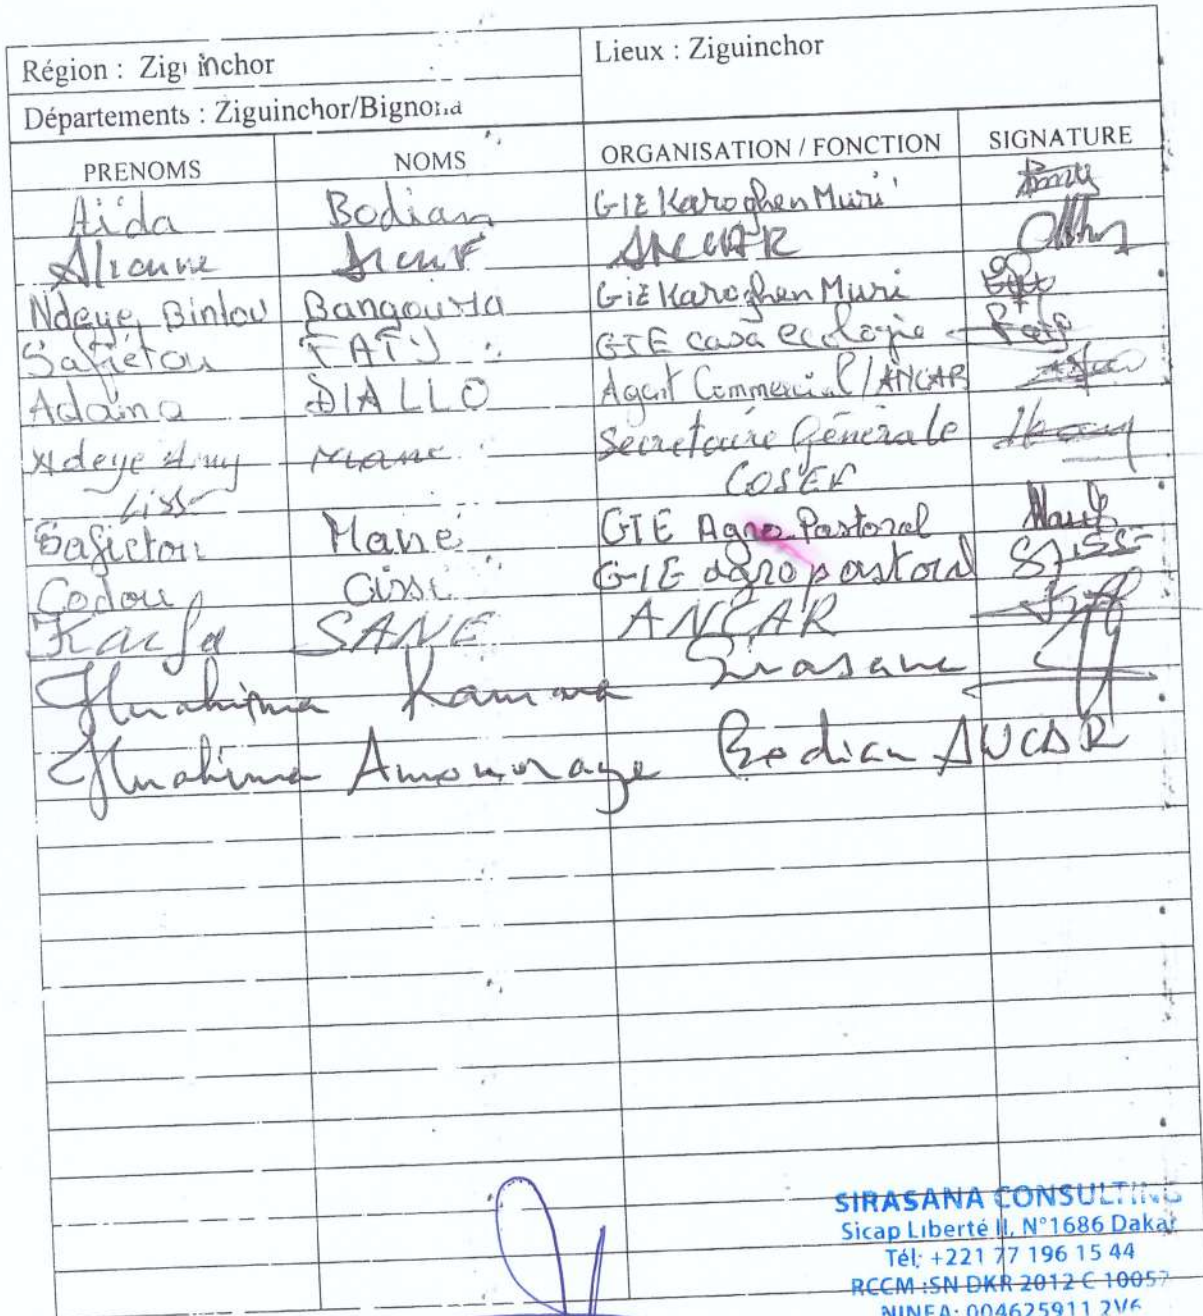 Région : Ziguinchor
Lieux : Ziguinchor
Départements : Ziguinchor/Bignona
PRENOMS NOMS ORGANISATION / FONCTION SIGNATURE
Aïda Bodian GIE Karoghen Muri
Alioune ANCAR
Ndeye Bintou Bangoura GIE Karoghen Muri
Safiétou FATY GIE casa ecologie
Adama DIALLO Agent Commercial / ANCAR
Ndeye Amy Mane Secretaire Générale
COSEF
Safietou Mané GIE Agro Pastoral
Codou Cissé GIE agropastoral
Karfa SANE ANCAR
Ibrahima Kamara Sirasana
Ibrahima Bodian ANCAR
SIRASANA CONSULTING
Sicap Liberté II, N°1686 Dakar
Tél: +221 77 196 15 44
RCCM :SN DKR 2012 C 10057
NINEA: 004625911 2V6